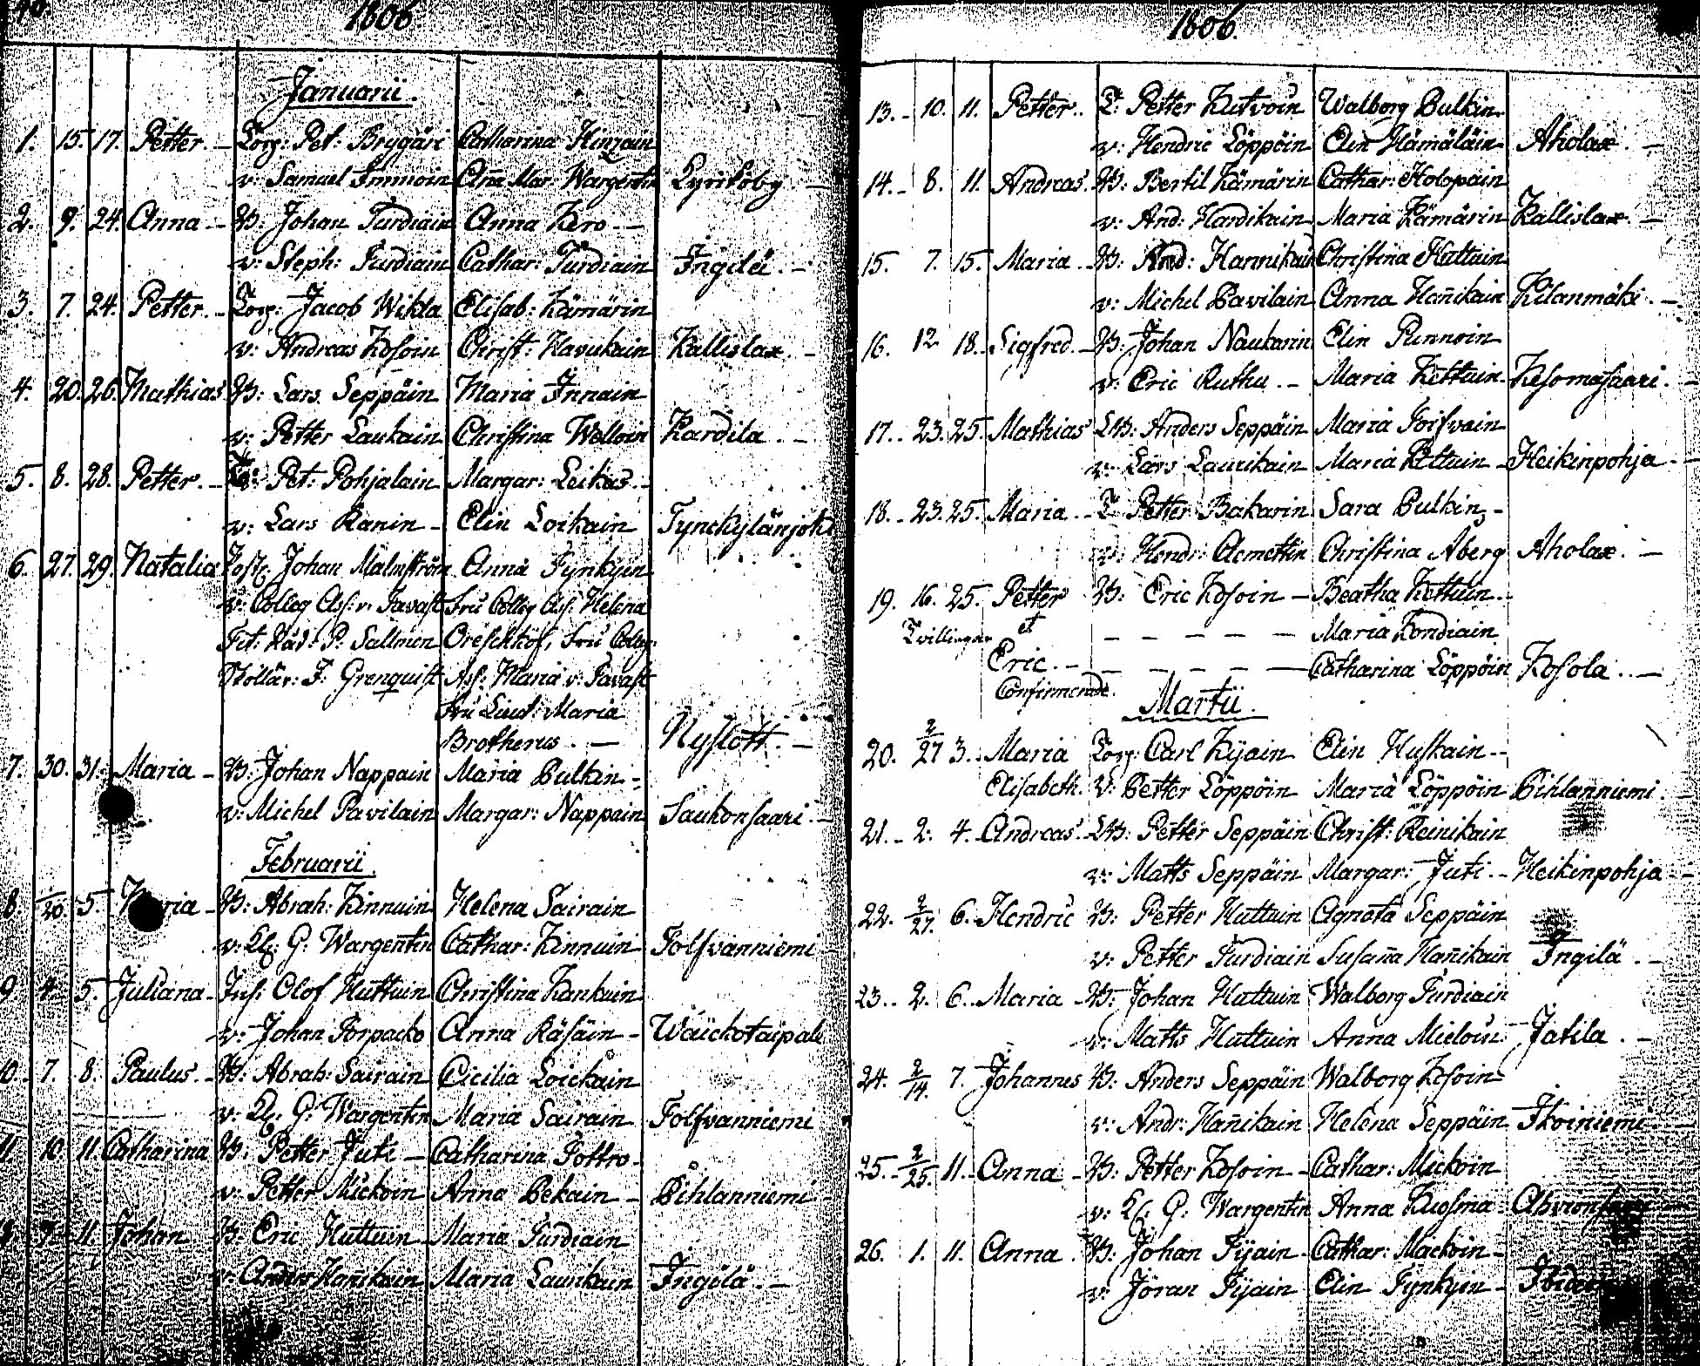 40.
1806
Januarii.
1. 15. 17. Petter. Torp: Pet: Brygäri Catharina Hinzain
v: Samuel Immoin Aña Mar: Wargentin Kyrkoby
2. 9. 24. Anna B: Johan Turdiain Anna Kero
v: Steph: Turdiain Cathar: Turdiain Ingilä.
3. 7. 24. Petter. Torp: Jacob Wikla Elisab: Kämärin
v: Andreas Kosoin Christ: Havukain Kallislax.
4. 20. 26. Mathias B: Lars Seppäin Maria Innain
v: Petter Laukain Christina Welloin Kardila
5. 8. 28. Petter. Pet: Pohjalain Margar: Leikas
v: Lars Ranin Elin Loikain Tynckylänjoki
6. 27. 29. Natalia Johan Malmström Anna Tynkyin
v: Colleg Ass: v: Javast Fru Colleg Ass: Helena
P: Sallmen Fru Colleg
F: Grenquist Ass: Maria v: Javast
Fru Lieut: Maria
Brotherus. Nyslott.
7. 30. 31. Maria B: Johan Nappain Maria Bulkin
v: Michel Pavilain Margar: Nappain Saukonsaari
Februarii
8. 20. 5. Maria B: Abrah: Kinnuin Helena Sairain
v: G: Wargentin Cathar: Kinnuin Tolfvanniemi
9. 4. 5. Juliana Inh: Olof Huttuin Christina Kankuin
v: Johan Torpacko Anna Räsäin Wäickotaipale
10. 7. 8. Paulus B: Abrah: Sairain Cicilia Loickain
v: G: Wargentin Maria Sairain Tolfvanniemi
11. 10. 11. Catharina B: Petter Juti Catharina Tottro
v: Petter Mickoin Anna Pekain Pihlanniemi
9. 11. Johan B: Eric Huttuin Maria Turdiain
v: Anders Hañikain Maria Laurikain Ingilä.
1806.
13. 10. 11. Petter. T: Petter Kutvoin Walborg Bulkin
v: Hendric Löppöin Elin Hämäläin Aholax.
14. 8. 11. Andreas. B: Bertil Kämärin Cathar: Holopain
v: And: Hardikain Maria Kämärin Kallislax.
15. 7. 15. Maria B: And: Hannikain Christina Huttuin
v: Michel Pavilain Anna Hañikain Kilanmäki.
16. 12 18. Sigfred. B: Johan Naukarin Elin Punnoin
v: Eric Ruthu Maria Kettuin Kesomasaari.
17. 23. 25. Mathias LB: Anders Seppäin Maria Toifvain
v: Lars Laurikain Maria Kettuin Heikinpohja
18. 23. 25. Maria T: Petter Bakarin Sara Bulkin
v: Hendr: Clemettin Christina Åberg Aholax.
19. 16. 25. Petter B: Eric Kosoin Beatha Kettuin
Tvillingar et Maria Kondiain
Eric Catharina Löppöin Kosola.
Confirmerade.
Martii.
20. 2/27 3. Maria Torp: Carl Kijain Elin Huskain
Elisabeth. v: Petter Löppöin Maria Löppöin Pihlanniemi.
21. 2. 4. Andreas. LB: Petter Seppäin Christ: Reinikain
v: Matts Seppäin Margar: Juti Heikinpohja
22. 2/27. 6. Hendric B: Petter Huttuin Agneta Seppäin
v: Petter Turdiain Susaña Hañikain Ingilä.
23. 2. 6. Maria B: Johan Huttuin Walborg Turdiain
v: Matts Huttuin Anna Mieloin Jatila.
24. 2/14. 7. Johannes B: Anders Seppäin Walborg Kosoin
v: Andr: Hañikain Helena Seppäin Ikoiniemi
25. 2/25 11. Anna B: Petter Kosoin Cathar: Mickoin
v: G: Wargentin Anna Kuosma
26. 1. 11. Anna B: Johan Tijain Cathar: Mackoin
v: Jöran Tijain Elin Tynkyin